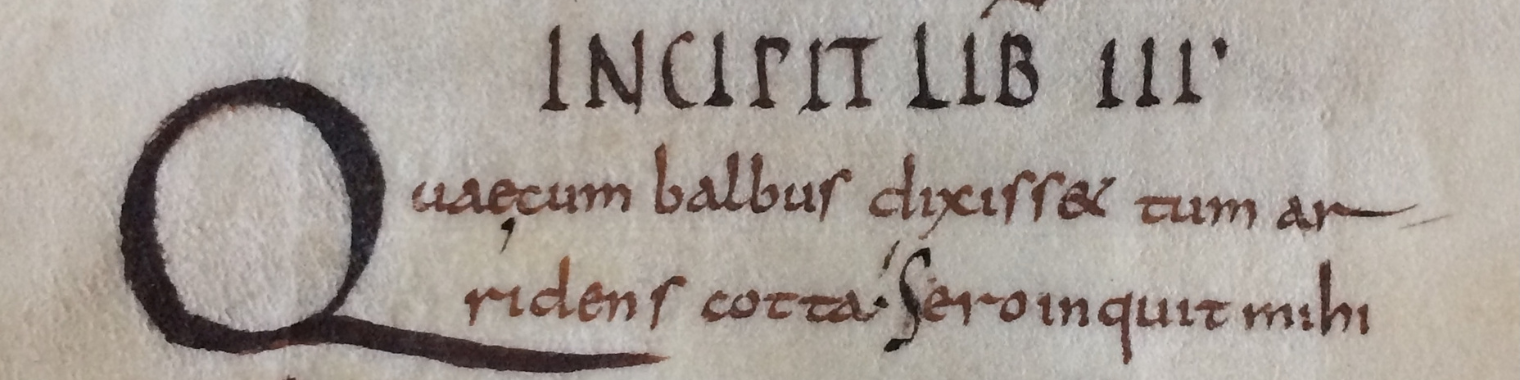 INCIPIT LIB̅ III·
Quaecum balbus dixiss& tum ar
ridens cotta· Sero inquit mihi